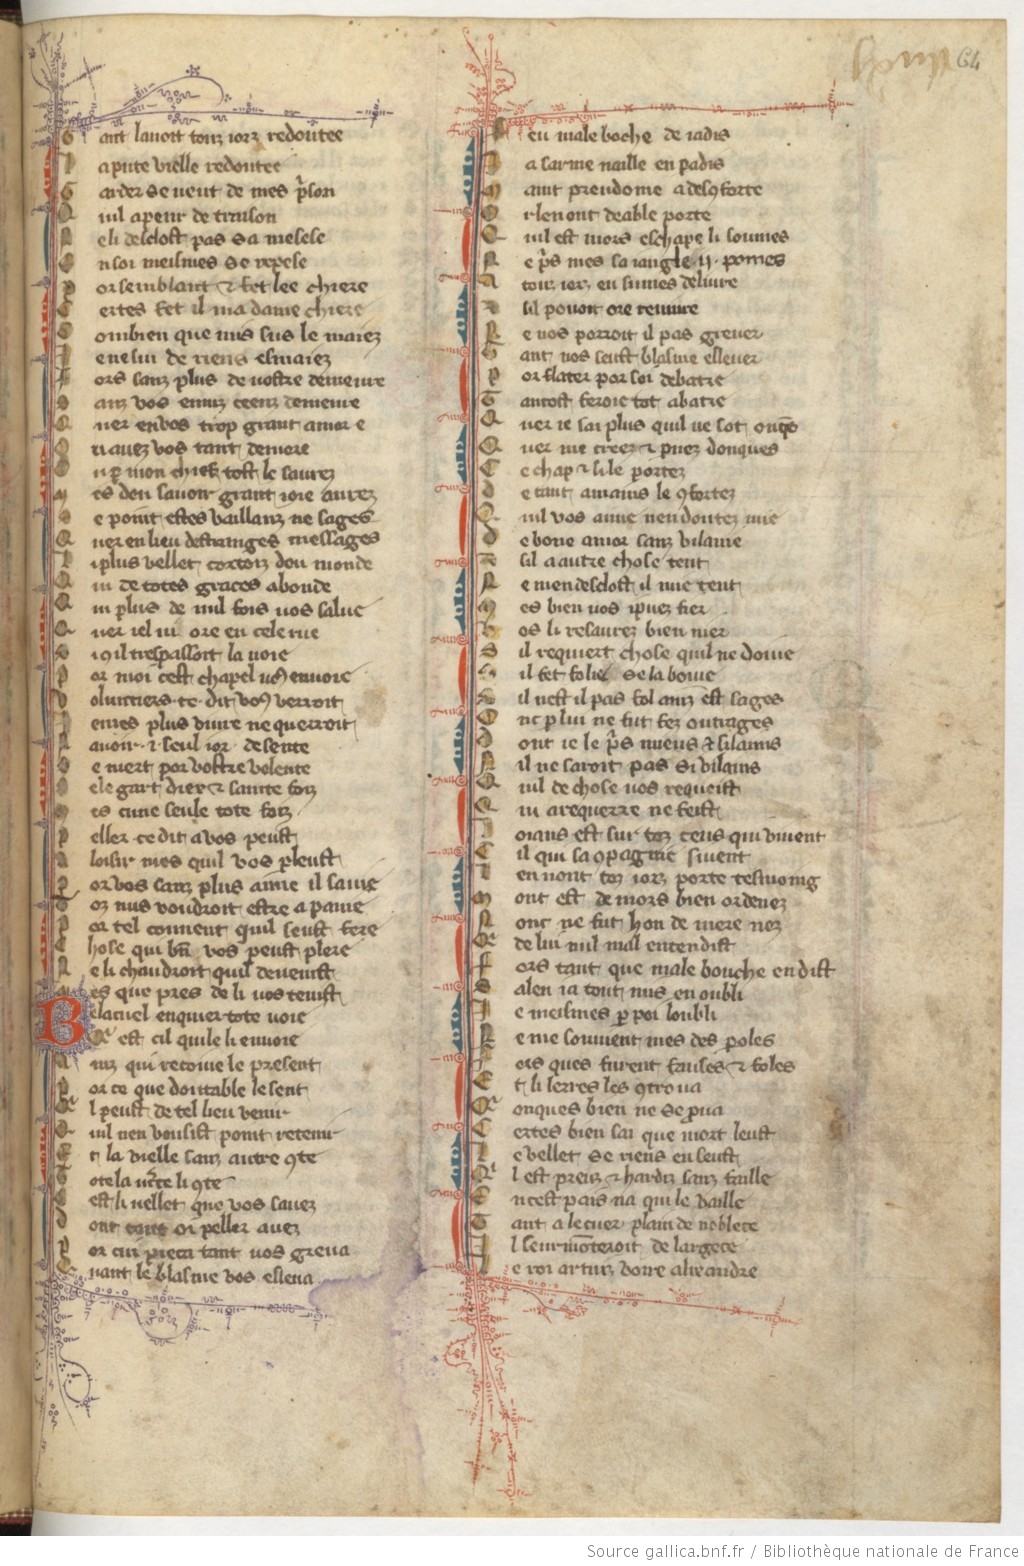 lxiiii 64
Tant lavoit touz iorz redoutee
La pute vielle redoutee
Garder se veut de mesprison
Quil a peur de traison
Ne li desclost pas sa mesese
En soi meismes se rapese
Por semblant & fet lee chiere
Certes fet il ma dame chiere
Combien que mis sus le maiez
Je ne sui de riens esmaiez
Fors sanz plus de vostre demeure
Sanz vos ennuiz ceenz demeure
Quer en vos trop grant amor e
Ou avez vos tant demore
Ou par mon chief tost le savrez
Mes dou savoir grant ioie aurez
Se point estes vaillanz ne sages
Quer en lieu destranges messages
Li plus vellet cortois dou monde
Qui de totes graces abonde
Qui plus de mil fois vos salue
Quer iel vi ore en cele rue
Si 9 il trespassoit la voie
Por moi cest chapel vos envoie
Volentiers ce dit vos verroit
James plus vivre ne querroit
Navoir .i. seul ior de sente
Se niert por vostre volente
Se le gart diex & sainte foiz
Mes cune seule tote foiz
Peller ce dit a vos peust
A loisir mes quil vos pleust
Por vos sanz plus aime il sa vie
Toz nus voudroit estre a pavie
Por tel convent quil seust fere
Chose qui bn vos peust plere
Ne li chaudroit quil devenist
Mes que pres de li vos tenist
Belacuel enquier tote voie
Qui est cil qui le li envoie
Ainz qui recoive le present
Por ce que doutable le sent
Quil peust de tel lieu venir
Quil nen vousist point retenir
Et la vielle sanz autre 9te
Tote la verite li 9te
Cest li vellet que vos savez
Dont tant oi peller avez
Por cui pieca tant vos greva
Quant le blasme vos esleva
Feu male boche de iadis
Ja sarme naille en padis
Maint preudome a des9forte
Or len ont deable porte
Quil est mors eschape li soumes
Ne pris mes sa iangle .ii. pomes
A touz iorz en sumes delivre
Et sil pouoit ore revivre
Ne vos porroit il pas grever
Tant vos seust blasme eslever
Por flater por soi debatre
Tantost feroie tot abatre
Quer ie sai plus quil ne sot onqes
Quer me creez & prnez donques
Ce chapel & si le portez
De tant amains le 9fortez
Quil vos aime nen doutez mie
De bone amor sanz vilanie
Et sil a autre chose tent
Ne men desclost il mie tent
Mes bien vos i poez fier
Vos li resaurez bien nier
Sil requiert chose quil ne doive
Sil fet folie si la boive
Si nest il pas fol ainz est sages
Onc par lui ne fut fez outrages
Dont ie le pris mieus & si lains
Sil ne saroit pas si vilains
Quil de chose vos requeist
Qui a requerre ne feist
Loiaus est sur toz ceus qui vivent
Cil qui sa 9pagnie sivent
Len en ont toz iorz porte tesmoing
Mont est de mors bien ordenez
Nonc ne fut hon de mere nez
Qui de lui nul mal entendist
Fors tant que male bouche en dist
Salen ia tout mis en oubli
Je meismes par poi loubli
Ne me souvient mes des paroles
Fors ques furent fauses & foles
Et li lerres les 9trova
Qui onques bien ne se prova
Certes bien sai que mort leust
Le vellet se riens en seust
Quil est preuz & hardiz sanz faille
En cest pais na qui le vaille
Tant a le cuer plain de noblece
Il seurmonteroit de largece
Le roi artur voire alixandre
Source gallica.bnf.fr / Bibliothèque nationale de France